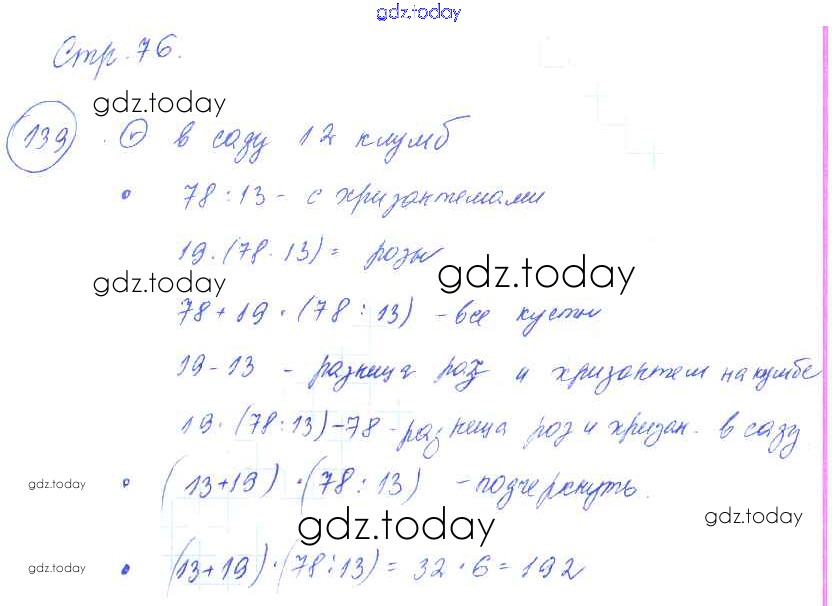 gdz.today
Стр. 76.
gdz.today
139 . в саду 12 клумб
78 : 13 - с хризантемами
19 . (78 . 13) = розы
gdz.today
gdz.today
78 + 19 . (78 : 13) - все кусты
19 - 13 - разница роз и хризантем на клумбе
19 . (78 : 13) - 78 - разница роз и хризан. в саду
gdz.today
(13+19) . (78 : 13) - подчеркнуть.
gdz.today
gdz.today
gdz.today
(13+19) . (78 : 13) = 32 . 6 = 192